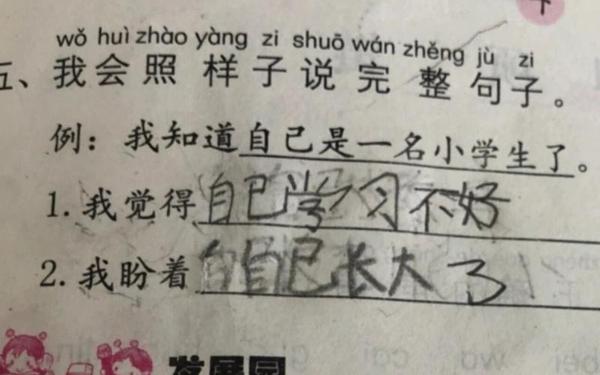 wǒ huì zhào yàng zi shuō wán zhěng jù zi
五、我会照样子说完整句子。
例：我知道自己是一名小学生了。
1.我觉得自己学习不好
2.我盼着自己长大了
发展园